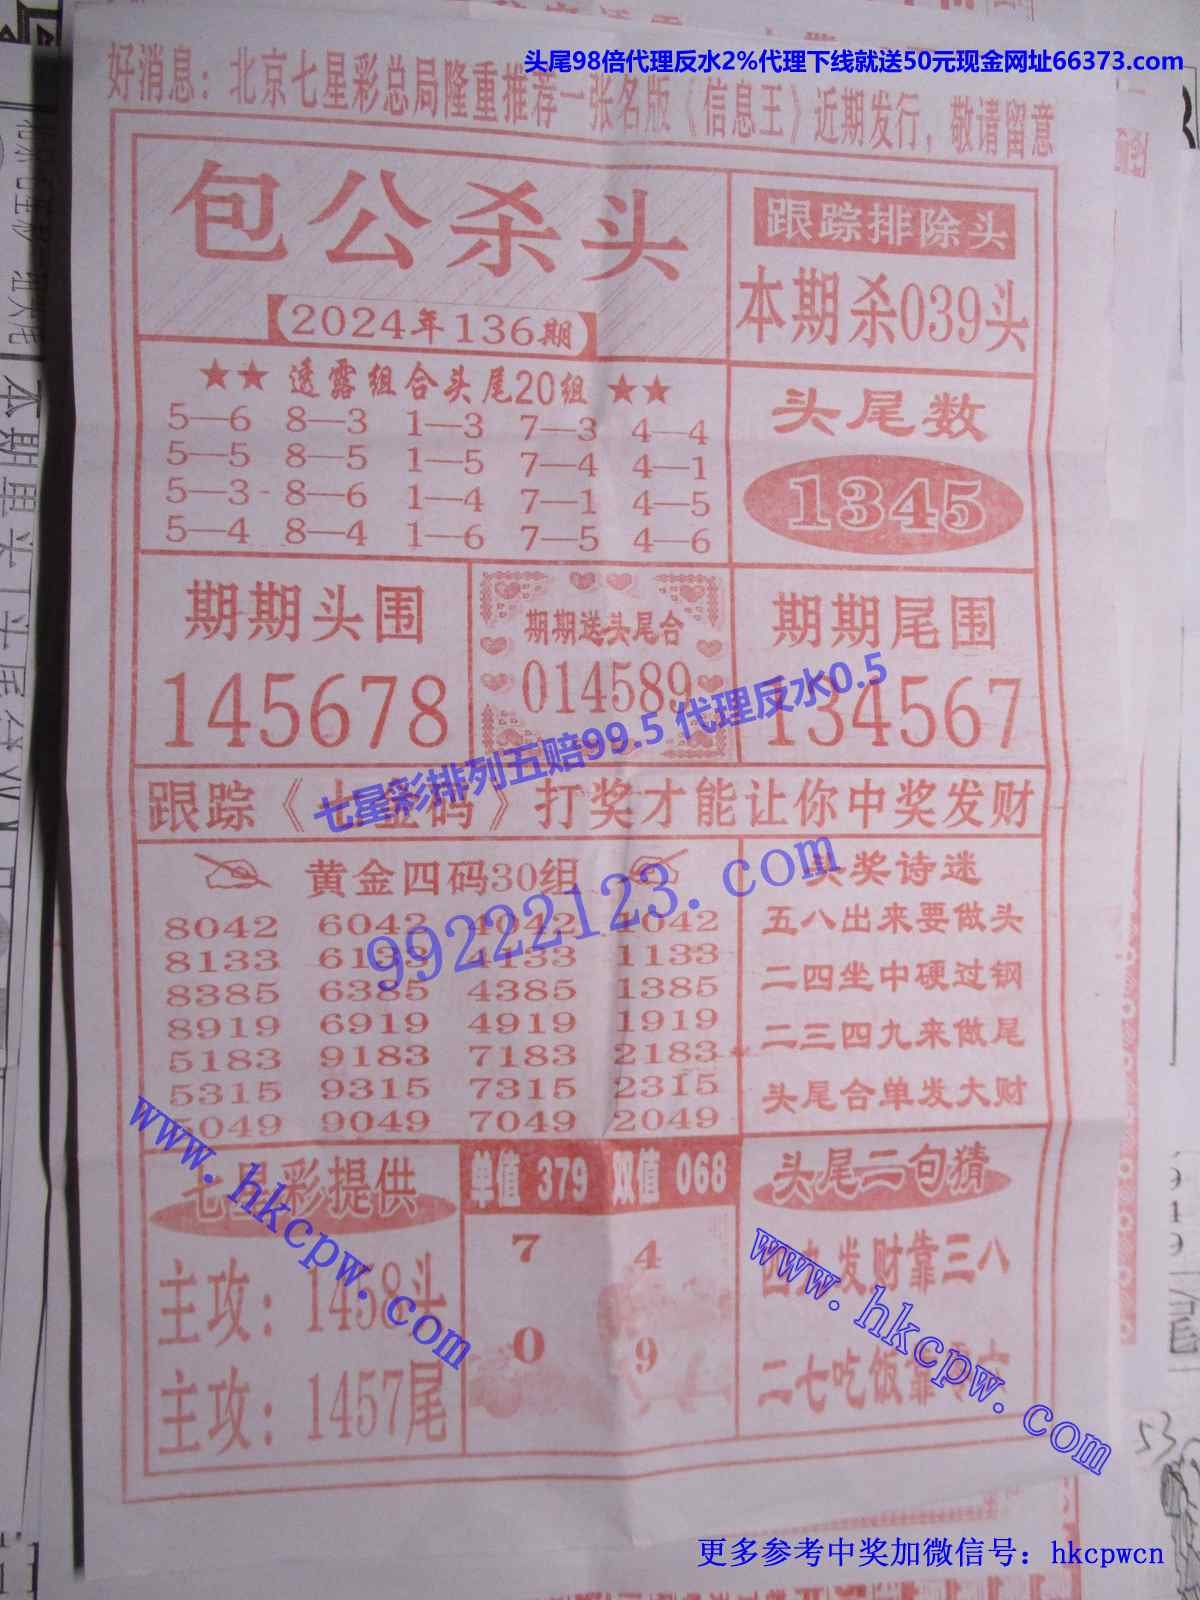 头尾98倍代理反水2%代理下线就送50元现金网址66373.com
好消息：北京七星彩总局隆重推荐一张名版《信息王》近期发行，敬请留意
包公杀头
【2024年136期】
跟踪排除头
本期杀039头
★★ 透露组合头尾20组 ★★
5—6 8—3 1—3 7—3 4—4
5—5 8—5 1—5 7—4 4—1
5—3 8—6 1—4 7—1 4—5
5—4 8—4 1—6 7—5 4—6
头尾数
1345
期期头围
145678
期期送头尾合
014589
期期尾围
134567
七星彩排列五赔99.5 代理反水0.5
跟踪《 码》打奖才能让你中奖发财
99222123.com
黄金四码30组
8042 6042 4042 1042
8133 6133 4133 1133
8385 6385 4385 1385
8919 6919 4919 1919
5183 9183 7183 2183
5315 9315 7315 2315
5049 9049 7049 2049
头奖诗迷
五八出来要做头
二四坐中硬过钢
二三四九来做尾
头尾合单发大财
七星彩提供
主攻：1458头
主攻：1457尾
www.hkcpw.com
单值 379 双值 068
7 4
0 9
头尾二句猜
四九发财靠三八
二七吃饭靠零六
www.hkcpw.com
更多参考中奖加微信号：hkcpwcn